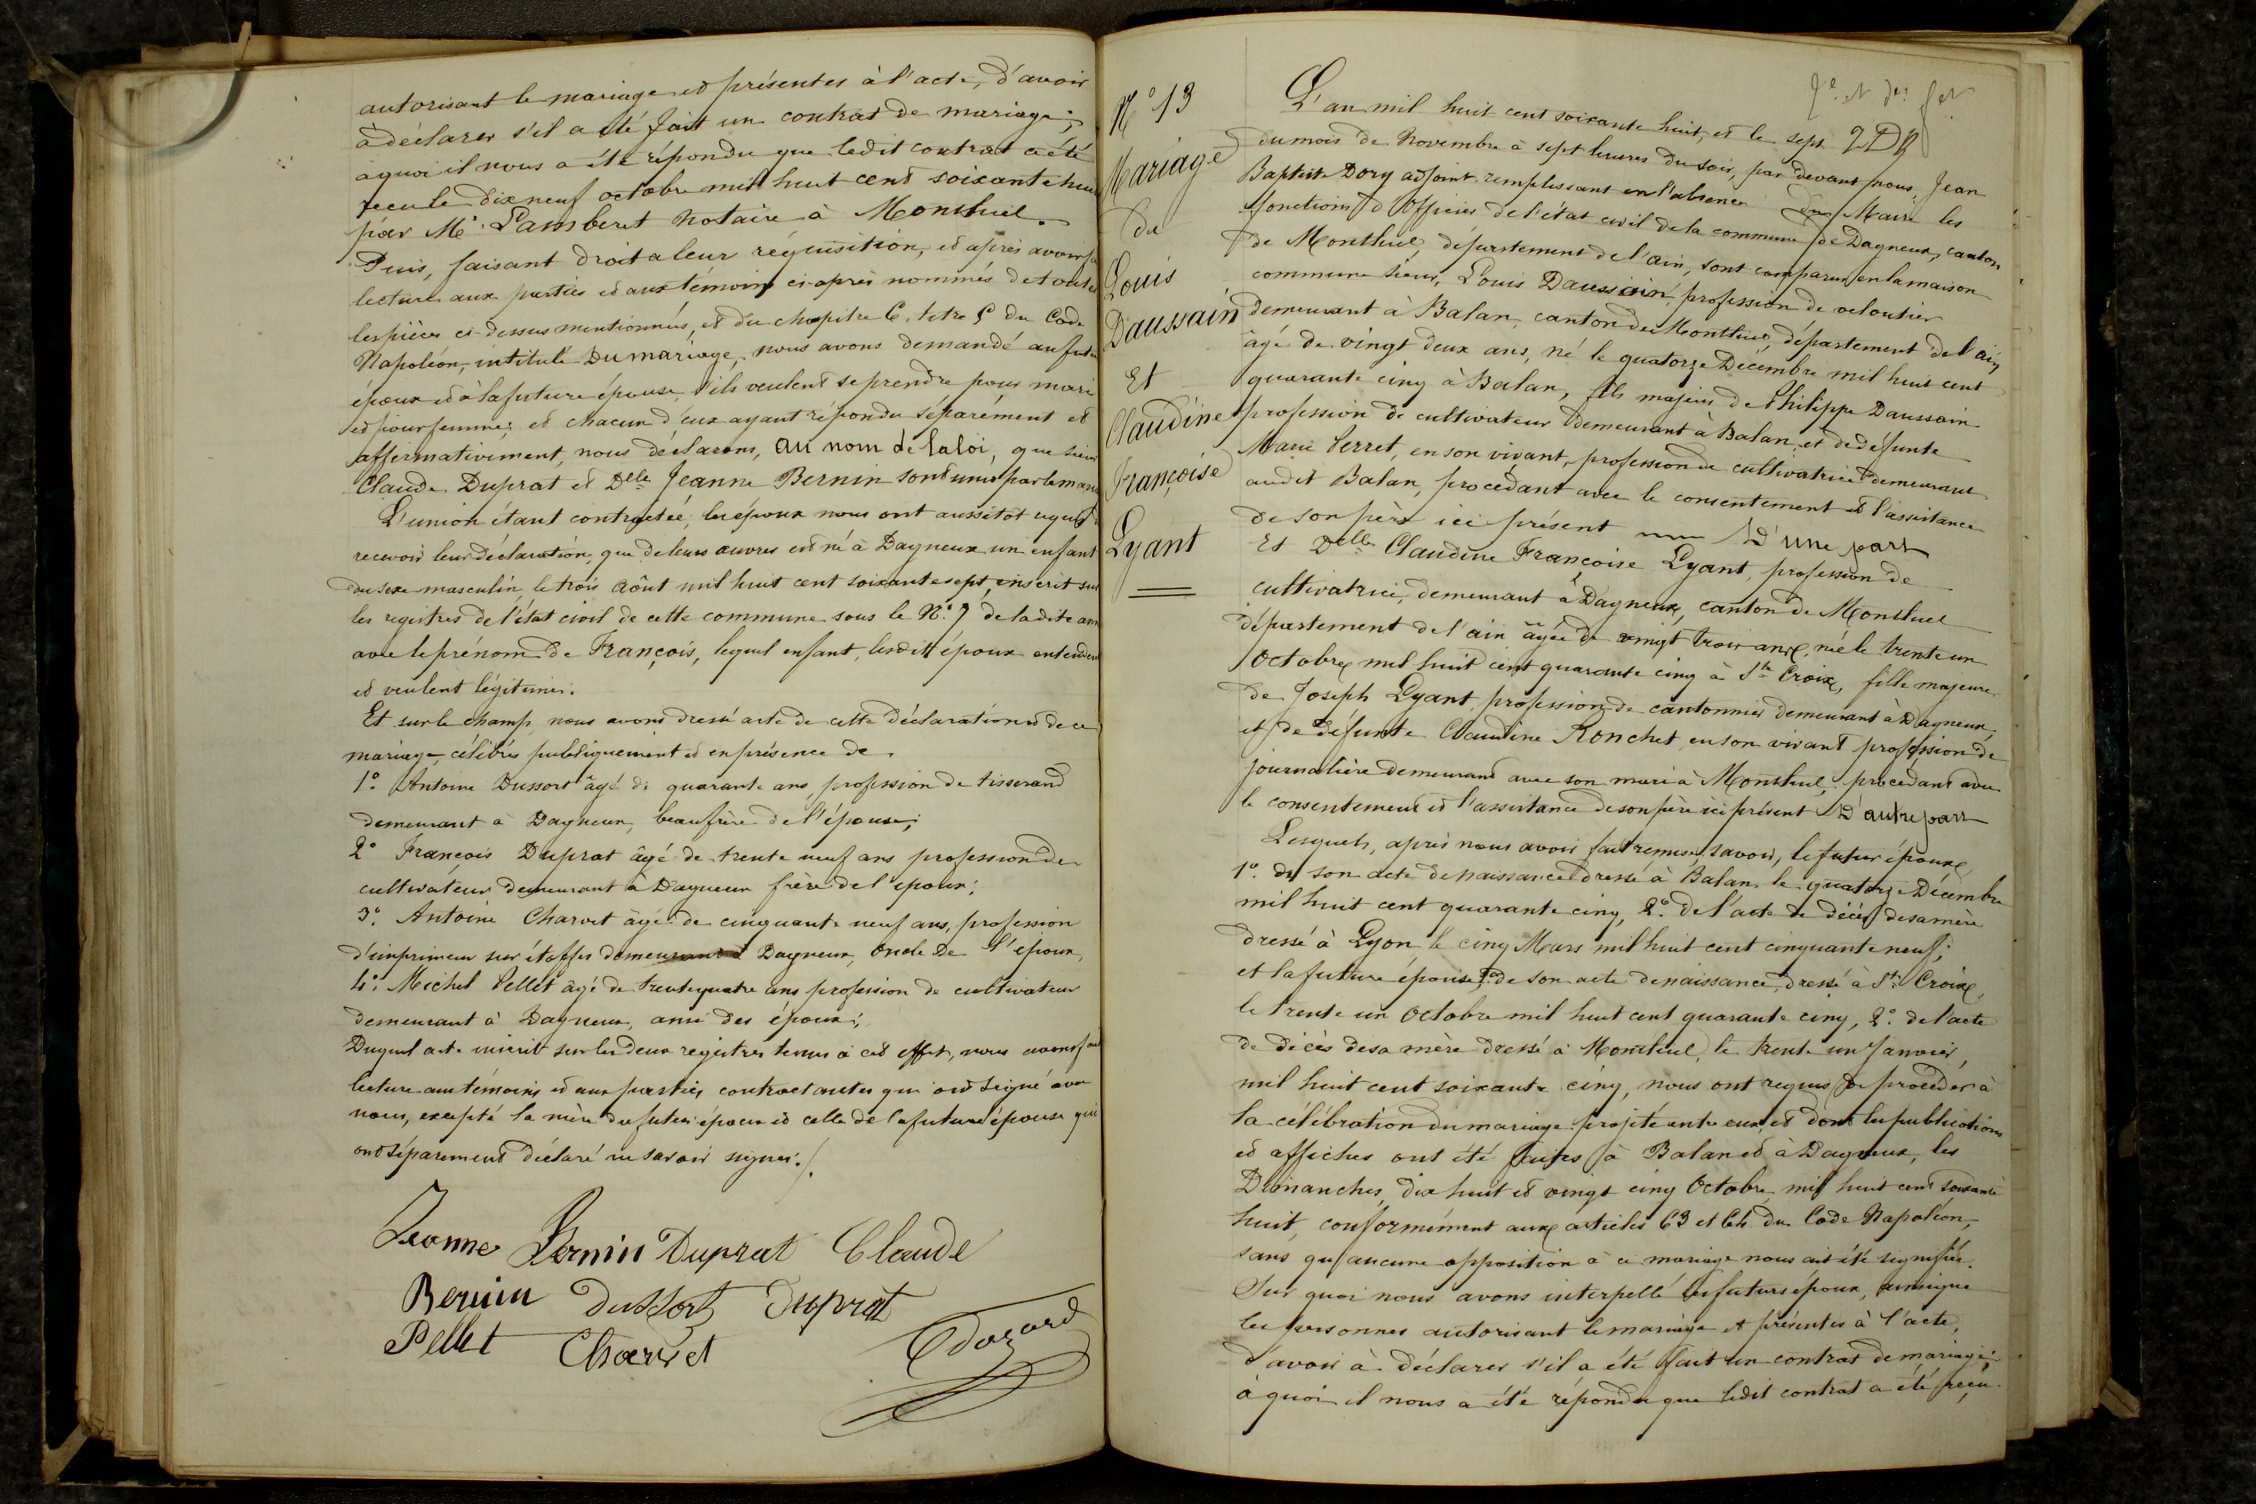 autorisant le mariage et présentes à l'acte, d'avoir
à déclarer s'il a été fait un contrat de mariage;
à quoi il nous a été répondu que ledit contrat a été
reçu le dix neuf octobre mil huit cent soixante huit
par Me. Lambert Notaire à Montluel.
Puis, faisant droit à leur réquisition, et après avoir
lecture aux parties et aux témoins ci-après nommés de toutes
les pièces ci-dessus mentionnées, et du chapitre 6. titre 5 du Code
Napoléon, intitulé Du mariage, nous avons demandé au futur
époux et à la future épouse s'ils veulent se prendre pour mari
et pour femme; et chacun d'eux ayant répondu séparément et
affirmativement, nous déclarons, au nom de la loi, que sieur
Claude Duprat et Delle Jeanne Bernin sont unis par le
L'union étant contractée, les époux nous ont aussitôt requis
recevoir leur déclaration, que de leurs œuvres est né à Dagneux un enfant
du sexe masculin, le trois Août mil huit cent soixante sept, inscrit sur
les registres de l'état civil de cette commune sous le N°. 7 de ladite
avec le prénom de François, lequel enfant, lesdits époux entendent
et veulent légitimer.
Et sur le champ, nous avons dressé acte de cette déclaration et de ce
mariage célébrés publiquement et en présence de
1° Antoine Dussort âgé de quarante ans, profession de tisserand
demeurant à Dagneux, beaufrère de l'épouse;
2° François Duprat âgé de trente neuf ans profession de
cultivateur demeurant à Dagneux frère de l'époux;
3° Antoine Charvet âgé de cinquante neuf ans, profession
d'imprimeur sur étoffes demeurant à Dagneux, oncle de l'époux,
4° Michel Pellet âgé de trente quatre ans profession de cultivateur
demeurant à Dagneux, ami des époux;
Duquel acte inscrit sur les deux registres tenus à cet effet, nous avons
lecture aux témoins et aux parties contractantes qui ont signé avec
nous, excepté la mère du futur époux et celle de la future épouse qui
ont séparément déclaré ne savoir signer./.
Jeanne Bernin Duprat Claude
Bernin Dussort Duprat
Pellet Charvet
N° 13
Mariage
de
Louis
Daussain
Et
Claudine
Françoise
Lyant
L'an mil huit cent soixante huit, et le sept
du mois de Novembre à sept heures du soir, par devant nous Jean
Baptiste Dory adjoint remplissant en l'absence du Maire les
fonctions d'Officier de l'état civil de la commune de Dagneux, canton
de Montluel, département de l'ain, sont comparus en la maison
commune sieur, Louis Daussain, profession de veloutier
demeurant à Balan, canton de Montluel, département de l'ain
âgé de vingt deux ans, né le quatorze Décembre mil huit cent
quarante cinq à Balan, fils majeur de Philippe Daussain
profession de cultivateur demeurant à Balan, et de défunte
Marie Verret, en son vivant, profession de cultivatrice demeurant
audit Balan, procédant avec le consentement et l'assistance
de son père ici présent D'une part
Et Delle Claudine Françoise Lyant, profession de
cultivatrice, demeurant à Dagneux, canton de Montluel
département de l'ain âgée de vingt trois ans, née le trente un
Octobre mil huit cent quarante cinq à Ste Croix, fille majeure
de Joseph Lyant, profession de cantonnier demeurant à Dagneux,
et de défunte Claudine Ronchet, en son vivant profession de
journalière demeurant avec son mari à Montluel, procédant avec
le consentement et l'assistance de son père ici présent D'autre part
Lesquels, après nous avoir fait remise, savoir, le futur époux
1° de son acte de naissance dressé à Balan le quatorze Décembre
mil huit cent quarante cinq, 2° de l'acte de décès de sa mère
dressé à Lyon le cinq Mars mil huit cent cinquante neuf;
et la future épouse, 1° de son acte de naissance, dressé à Ste Croix,
le trente un Octobre mil huit cent quarante cinq, 2° de l'acte
de décès de sa mère dressé à Montluel, le trente un Janvier,
mil huit cent soixante cinq, nous ont requis de procéder à
la célébration du mariage projeté entre eux, et dont les publications
et affiches ont été faites à Balan et à Dagneux, les
Dimanches, dix huit et vingt cinq Octobre mil huit cent soixante
huit, conformément aux articles 63 et 64 du Code Napoléon,
sans qu'aucune opposition à ce mariage nous ait été signifiée.
Sur quoi nous avons interpellé les futurs époux, ainsi que
les personnes autorisant le mariage et présentes à l'acte,
d'avoir à déclarer s'il a été fait un contrat de mariage;
à quoi il nous a été répondu que ledit contrat a été reçu